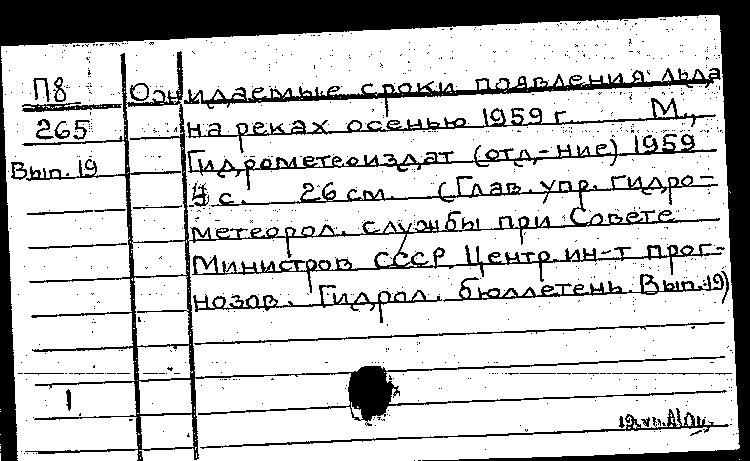 П8 Ожидаемые сроки появления льда
265 на реках осенью 1959 г. М.,
Вып. 19 Гидрометеоиздат (отд-ние) 1959
4 с. 26 см. (Глав. упр. гидро-
метеорол. службы при Совете
Министров СССР. Центр. ин-т прог-
нозов. Гидрол. бюллетень Вып. 19)
1